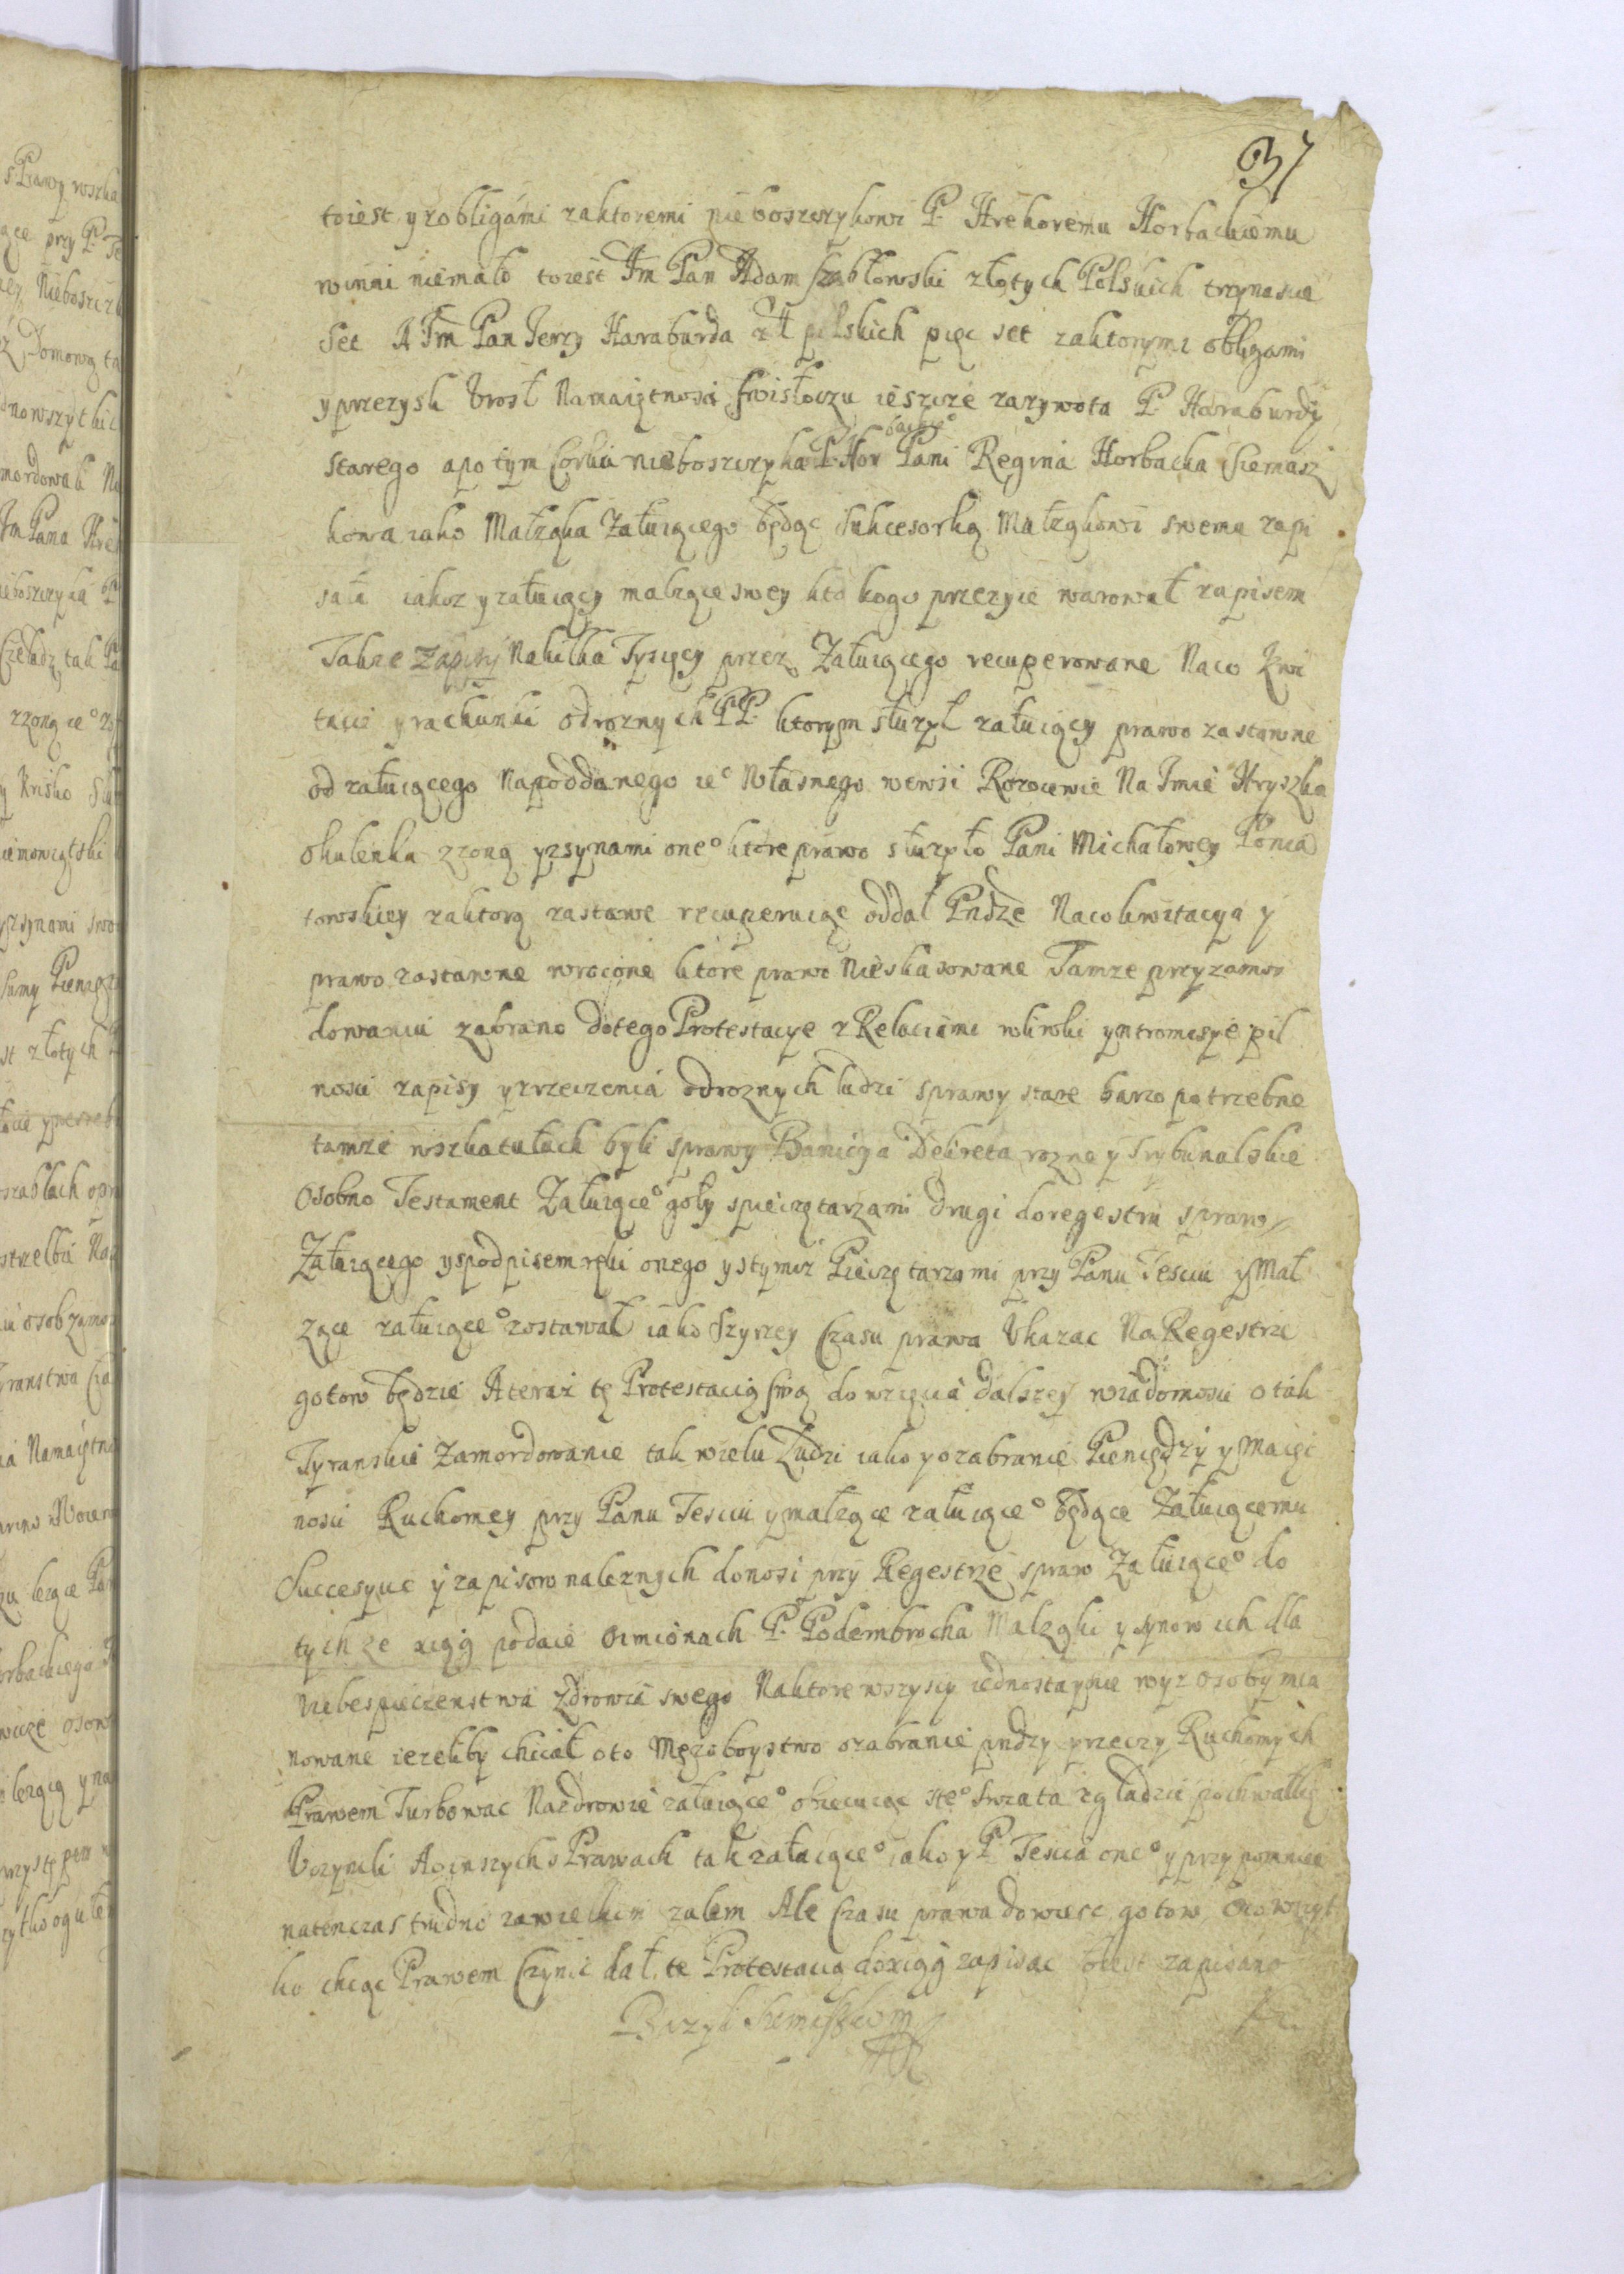 37
toiest y zobligami zaktoremi nieboszczykowi P. Hrehoremu Horbackiemu
winni niemało toiest Jm Pan Adam szabłowski złotych Polskich trzynascie
Set A Jm Pan Jerzy Haraburda zł polskich pięc set zaktorymi obligami
y przezysk Vrosł Namaiętnosci swisłoczu ieszcze zazywota P. Haraburdy
starego apotym Corka nieboszczyka P. Horbackie° Pani Regina Horbacka Siemasz
kowa iako Małząka Załuiącego będąc Sukcesorką Małząkowi swemu zapi
sała iakoz y załuiący malzące swey kto kogo przezyie warował zapisem
Takze zapisy Nakilka Tysięcy przez Załuiącego recuperowane Naco kwi
tacii y rachunki odroznych PP. ktorym słuzył załuiący prawo zastawne
od załuiącego Napoddanego ie° własnego wewsi Rozocewie Na Imie Hryszka
okulenka zzoną yzsynami one° ktore prawo słuzyło Pani Michałowey Ponia
towskiey zaktorą zastawe recuperuiąc oddał Pndze Naco kwitacya y
prawo zastawne wrocone ktore prawo Nieskasowane Tamze przyzamor
dowaniu zabrano dotego Protestacye zRelaciami wliwki yntromisye pil
nosci zapisy yzrzeczenia odroznych ludzi sprawy stare barzo potrzebne
tamze wszkatułach byli sprawy Banicya Dekreta rozne y Trybunalskie
Osobno Testament Załuiące° goły spieczętarzami drugi doregestru spraw
Załuiącego yspodpisem ręki onego ystymiz Pieczętarzami przy Panu Tesciu y Mał
zące załuiące° zostawał iako Szyrzey Czasu prawa Vkazac Na Regestrze
gotow będzie A teraz tę Protestacią swą do wzięcia dalszey wiadomosci otak
Tyranskie Zamordowanie tak wielu Ludzi iako y ozabranie Pieniędzy y Maięt
nosci Ruchomey przy Panu Tesciu ymałzące załuiące° będące Załuiącemu
Succesyue y zapisow naleznych donosi przy Regestrze spraw Załuiące° do
tychze xiąg podaie oimionach P. Podembrocha Malząki y synow ich dla
Niebespieczenstwa zdrowia swego Naktore wszyscy iednostaynie wyz osoby mia
nowane iezeliby chciał oto Męzoboystwo ozabranie pndzy yrzeczy Ruchomych
Prawem Turbowac Nazdrowie załuiące° obiecuiąc ste° swiata zgładzic pochwałkę
Vczynili Aoinszych sPrawach tak załuiące° iako y P. Tescia one° y przypomniec
natenczas trudno zawielkim zalem Ale Czasu prawa dowiesc gotow Ocowszyt
ko chcąc Prawem Czynic dał te Protestacią doxiąg zapisac Coiest zapisano